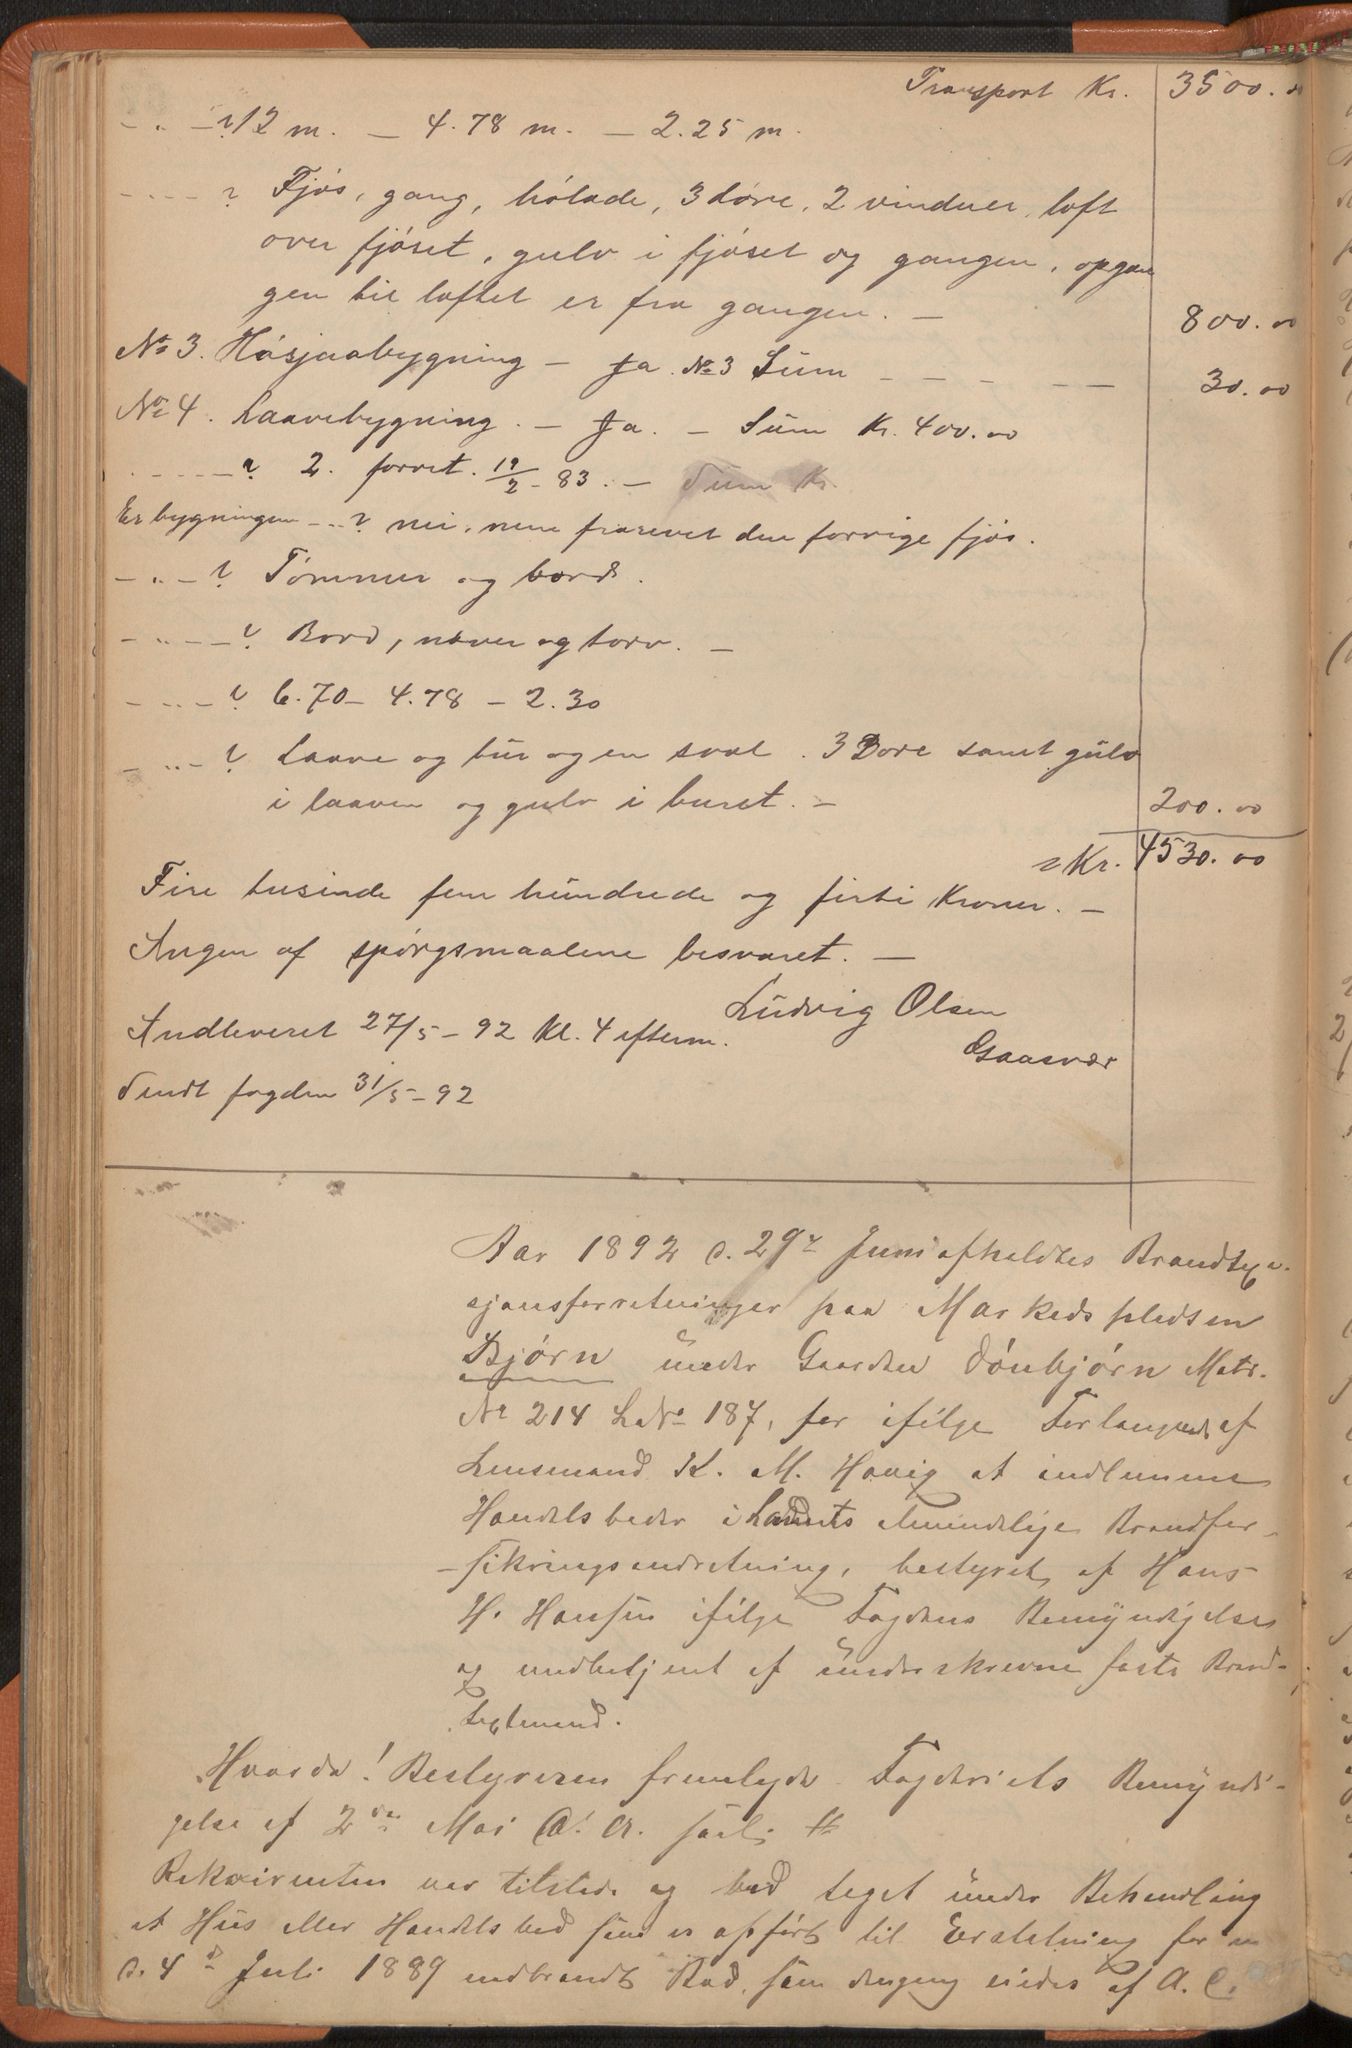 Transport Kr. 3500.00
- " - ? 12 m. - 4.78 m. - 2.25 m.
- - - - ? Fjós, gang, hólade, 3 döre, 2 vinduer, loft
over fjóset, gulv i fjóset og gangen, opgan
gen til loftet er fra gangen. - 800.00
No 3. Hósjaabygning - Ja. No 3 Sum - - - - - 30.00
No 4. Laavebygning. - Ja. - Sum Kr. 400.00
- - - - - ? 2. forret. 19/2 - 83. - Sum Kr.
Er bygningen - .. ? nei, men frarevet den forrige fjós.
- " - ? Tómmer og bord.
- " - - ? Bord, never og torv. -
- - " - ? 6.70 - 4.78 - 2.30
- " - ? Laave og bur og en sval. 3 Dore samt gulv
i laaven og gulv i buret. - 200.00
= Kr. 4530.00
Fire tusinde fem hundrede og firti Kroner. -
Ingen af spórgsmaalene besvaret. -
Ludvig Olsen
Indleveret 27/5 - 92 Kl. 4 efterm.
Gaasvær
Sendt fogden 31/5 - 92
Aar 1892 d. 29de Juni afholdtes Brandtaxa-
sjonsforretninger paa Markedspladsen
Bjórn under Gaarden Dónbjórn Matr.
No 214 L No 187, for ifölge Forlangende af
Lensmand K. M. Havig at indlemme
Handelsboder i Landets almindelige Brandfor-
-sikringsindretning, bestyret af Hans
H. Hansen ifölge Fogdens Bemyndigelse
og medbetjent af underskrevne faste Brand-
taxtmend.
Hvorda! Bestyreren fremlagde Fogderiets Bemyndi-
gelse af 2den Mai d. A.
Rekvirenten var tilstede og bad taget under Behandling
et Hus eller Handelsbod som er opfört til Erstatning for en
d. 4de Juli 1889 nedbrendt Bod, som dengang eiedes af A. C.